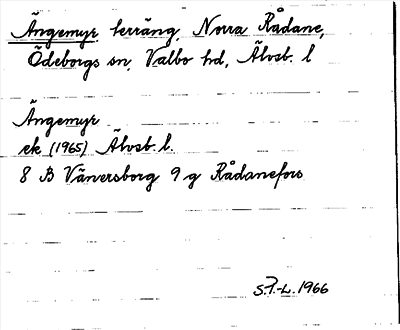 Ängemyr. terräng, Norra Rådane,
Ödeborgs sn, Valbo hd, Älvsb. l
Ängemyr
ek (1965) Älvsb. l.
8 B Vänersborg 9 g Rådanefors
S.P.-L. 1966